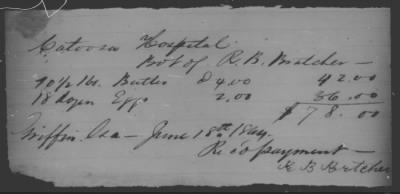 Catoosa Hospital
Bot of R. B. Bratcher —
10 1/2 lbs. Butter $ 4.00 42.00
18 dozen Eggs 2.00 36.00
$ 78.00
Griffin, Ga — June 18th 1864
Rec'd payment —
R B Bratcher